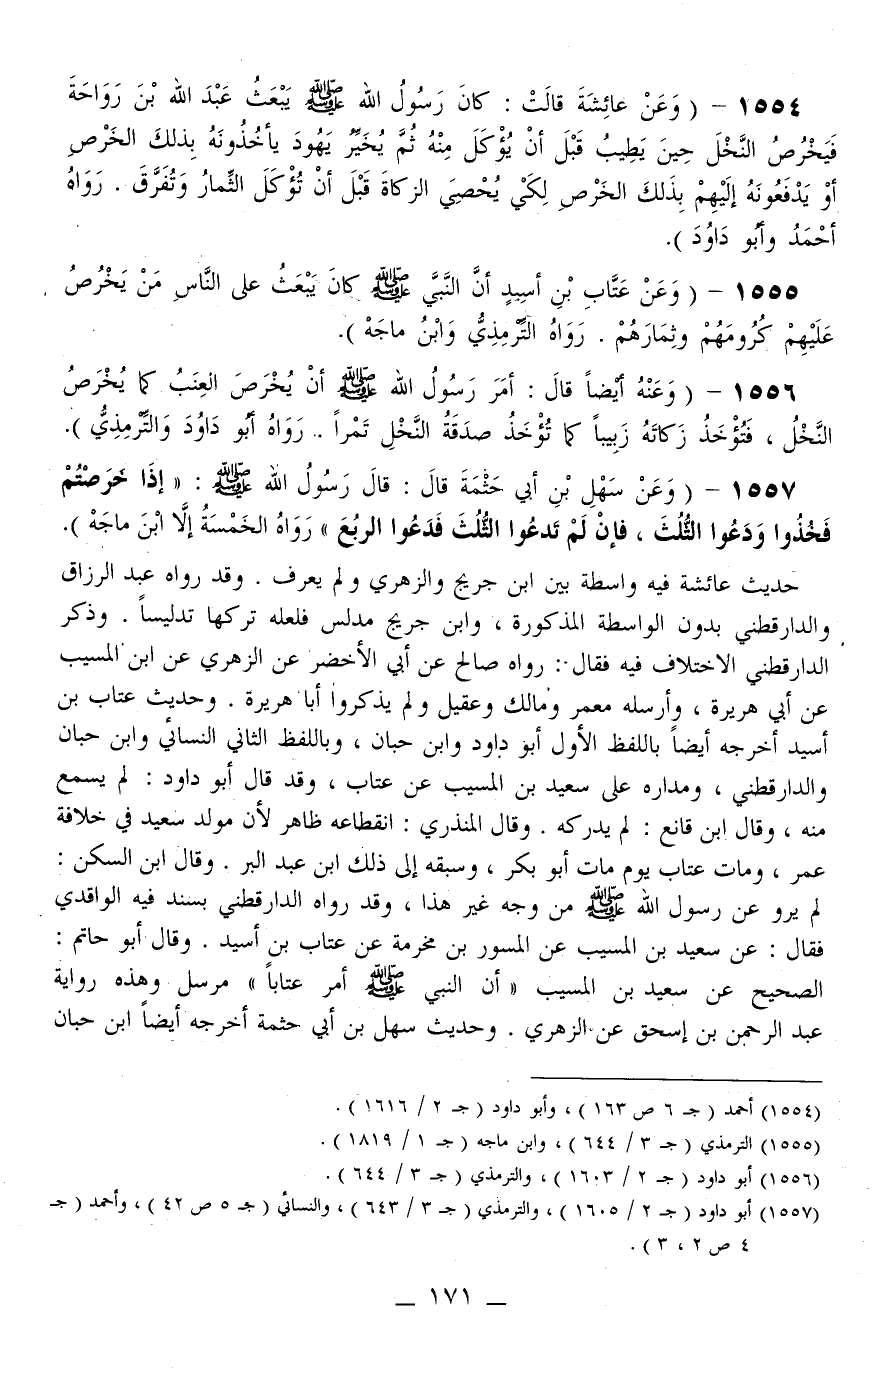 ١٥٥٤ – ( وَعَنْ عائِشَةَ قالَتْ : كانَ رَسُولُ الله ﷺ يَبْعَثُ عَبْدَ الله بْنَ رَوَاحَةَ
فَيَخْرُصُ النَّخْلَ حِينَ يَطِيبُ قَبْلَ أنْ يُؤْكَلَ مِنْهُ ثُمَّ يُخَيِّرُ يَهُودَ يأخُذُونَهُ بِذلكَ الخَرْصِ
أوْ يَدْفَعُونَهُ إلَيْهِمْ بِذَلكَ الخَرْصِ لِكَيْ يُحْصِيَ الزكاةَ قَبْلَ أنْ تُؤْكَلَ الثِّمارُ وَتُفَرَّقَ . رَوَاهُ
أحْمَدُ وأبُو دَاوُدَ ).
١٥٥٥ – ( وَعَنْ عَتَّابِ بْنِ أسِيدٍ أنَّ النَّبيَّ ﷺ كانَ يَبْعَثُ على النَّاسِ مَنْ يَخْرُصُ
عَلَيْهِمْ كُرُومَهُمْ وثِمَارَهُمْ . رَوَاهُ التِّرْمِذِيُّ وَابْنُ ماجَهْ ).
١٥٥٦ – ( وَعَنْهُ أيْضاً قالَ : أمَرَ رَسُولُ الله ﷺ أنْ يُخْرَصَ العِنَبُ كما يُخْرَصُ
النَّخْلُ ، فَتُؤْخَذُ زَكاتَهُ زَبِيباً كما تُؤْخَذُ صدَقَةُ النَّخْلِ تَمْراً . رَوَاهُ أبُو دَاوُدَ وَالتِّرْمِذِيُّ ).
١٥٥٧ – ( وَعَنْ سَهْلِ بْنِ أبي حَثْمَةَ قالَ : قالَ رَسُولُ الله ﷺ : « إذَا خَرَصْتُمْ
فَخُذُوا وَدَعُوا الثُّلُثَ ، فإنْ لَمْ تَدعُوا الثُّلُثَ فَدَعُوا الربُعَ » رَوَاهُ الخَمْسَةُ إلَّا ابْنَ ماجَهْ ).
حديث عائشة فيه واسطة بين ابن جريج والزهري ولم يعرف . وقد رواه عبد الرزاق
والدارقطني بدون الواسطة المذكورة ، وابن جريج مدلس فلعله تركها تدليساً . وذكر
الدارقطني الاختلاف فيه فقال : رواه صالح عن أبي الأخضر عن الزهري عن ابن المسيب
عن أبي هريرة ، وأرسله معمر ومالك وعقيل ولم يذكروا أبا هريرة . وحديث عتاب بن
أسيد أخرجه أيضاً باللفظ الأول أبو داود وابن حبان ، وباللفظ الثاني النسائي وابن حبان
والدارقطني ، ومداره على سعيد بن المسيب عن عتاب ، وقد قال أبو داود : لم يسمع
منه ، وقال ابن قانع : لم يدركه . وقال المنذري : انقطاعه ظاهر لأن مولد سعيد في خلافة
عمر ، ومات عتاب يوم مات أبو بكر ، وسبقه إلى ذلك ابن عبد البر . وقال ابن السكن :
لم يرو عن رسول الله ﷺ من وجه غير هذا ، وقد رواه الدارقطني بسند فيه الواقدي
فقال : عن سعيد بن المسيب عن المسور بن مخرمة عن عتاب بن أسيد . وقال أبو حاتم :
الصحيح عن سعيد بن المسيب « أن النبي ﷺ أمر عتاباً » مرسل وهذه رواية
عبد الرحمن بن إسحق عن الزهري . وحديث سهل بن أبي حثمة أخرجه أيضاً ابن حبان
(١٥٥٤) أحمد ( جـ ٦ ص ١٦٣ ) ، وأبو داود ( جـ ٢ / ١٦١٦ ) .
(١٥٥٥) الترمذي ( جـ ٣ / ٦٤٤ ) ، وابن ماجه ( جـ ١ / ١٨١٩ ) .
(١٥٥٦) أبو داود ( جـ ٢ / ١٦٠٣ ) ، والترمذي ( جـ ٣ / ٦٤٤ ) .
(١٥٥٧) أبو داود ( جـ ٢ / ١٦٠٥ ) ، والترمذي ( جـ ٣ / ٦٤٣ ) ، والنسائي ( جـ ٥ ص ٤٢ ) ، وأحمد ( جـ
٤ ص ٢ ، ٣ ) .
– ١٧١ –